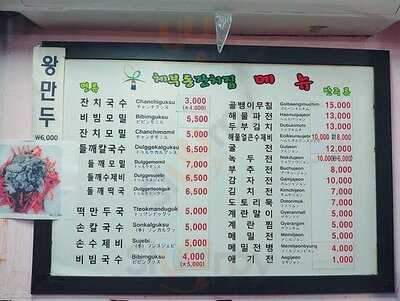 왕만두
₩6,000
체부동잔치집 메뉴
명품
안주류
잔치국수 Chanchiguksu 3,000
チャンチグクス (★4,000)
비빔모밀 Bibimguksu 5,500
잔치모밀 Chanchimomil 5,000
들깨칼국수 Dulggekalguksu 6,500
들깨모밀 Dulggemomil 7,000
들깨수제비 Dulggesujebi 6,500
들깨떡국 Dulggeteokguk 6,500
떡만두국 Tteokmanduguk 5,000
손칼국수 Sonkalguksu 5,000
손수제비 Sujebi 5,000
비빔국수 Bibimguksu 4,000
ビビングクス (★5,000)
골뱅이무침 Golbaengimuchim 15,000
해물파전 Haemuljpajeon 13,000
두부김치 Dubukimchi 13,000
해물얼큰수제비 10,000
굴전 Guljeon 12,000
녹두전 Nokdujeon
부추전 Buchujeon 8,000
감자전 Gamjajeon 10,000
김치전 Kimchijeon 7,000
도토리묵 Dotorimuk 7,000
계란말이 Dyeranmari 7,000
계란찜 Gyeranjjim 5,000
메밀전 Memiljeon 5,000
메밀전병 4,000
애기전 Aegijeon 1,000